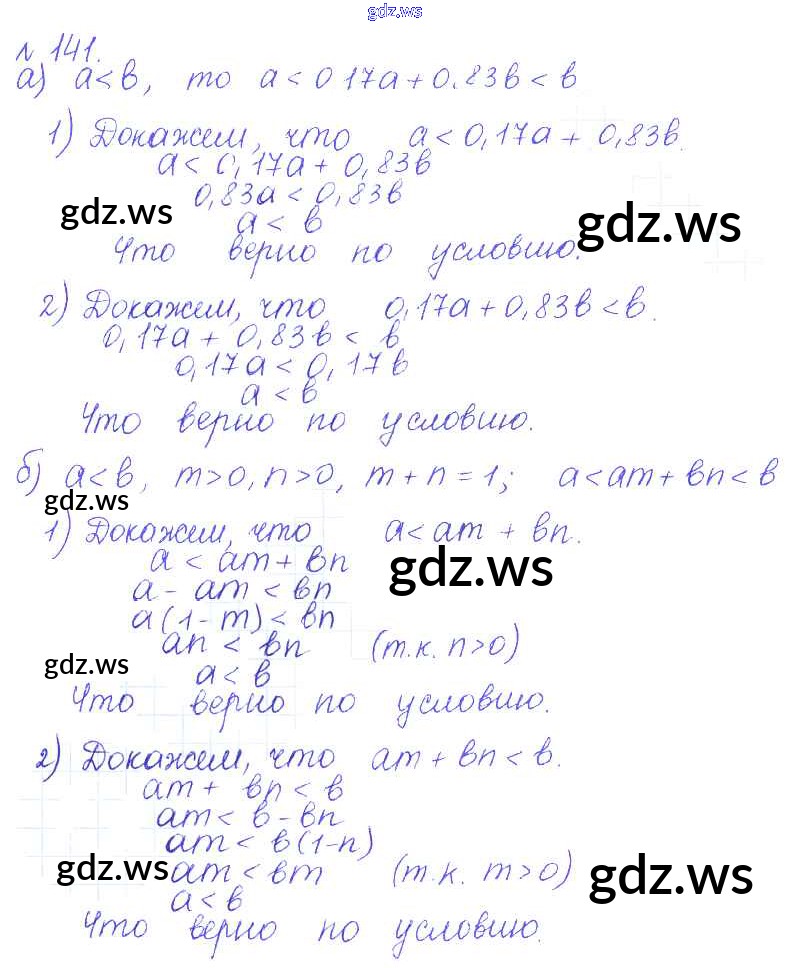 gdz.ws
№ 141.
а) a < b, то a < 0 17a + 0.83b < b
1) Докажем, что a < 0,17a + 0,83b.
a < 0,17a + 0,83b
0,83a < 0,83b
gdz.ws
gdz.ws
a < b
Что верно по условию.
2) Докажем, что 0,17a + 0,83b < b.
0,17a + 0,83b < b
0,17a < 0,17b
a < b
Что верно по условию.
б) a < b, m > 0, n > 0, m + n = 1; a < am + bn < b
gdz.ws
1) Докажем, что a < am + bn.
a < am + bn
gdz.ws
a - am < bn
a(1 - m) < bn
an < bn (т.к. n > 0)
gdz.ws
a < b
Что верно по условию.
2) Докажем, что am + bn < b.
am + bn < b
am < b - bn
am < b(1-n)
gdz.ws
am < bm (т.к. m > 0)
gdz.ws
a < b
Что верно по условию.